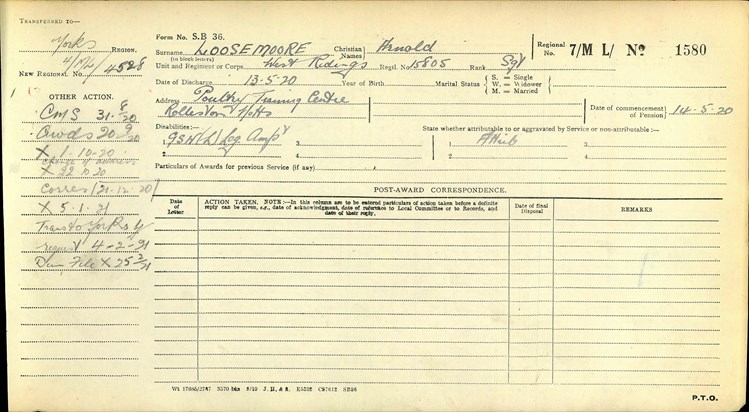 TRANSFERRED TO—
Yorks
REGION.
4/ML/ 4528
NEW REGIONAL No.
OTHER ACTION.
CMS 31.8/20
Awds 20 9/20
X 1.10.20
Change of address
X 22.10.20
Corres (21.12.20)
X 5.1.21
Trans to Yorks 4
request 4-2-21
Dun File X 25 2/21
Form No. S.B 36.
Surname (in block letters) LOOSEMOORE Christian Names Arnold
Unit and Regiment or Corps West Ridings Regtl. No. 15805 Rank Sgt
Date of Discharge 13-5-20 Year of Birth Marital Status { S. = Single
W. = Widower
M. = Married
Address Poultry Training Centre
Rolleston Notts
Disabilities:—
1 GSW (L) Leg Ampt 3
2 4
Particulars of Awards for previous Service (if any)
Regional No. 7/M L/ No 1580
Date of commencement of Pension } 14-5-20
State whether attributable to or aggravated by Service or non-attributable :—
1 Attrib 3
2 4
POST-AWARD CORRESPONDENCE.
Date of Letter
ACTION TAKEN. NOTE:—In this column are to be entered particulars of action taken before a definite reply can be given, e.g., date of acknowledgment, date of reference to Local Committee or to Records, and date of their reply.
Date of final Disposal
REMARKS
P.T.O.